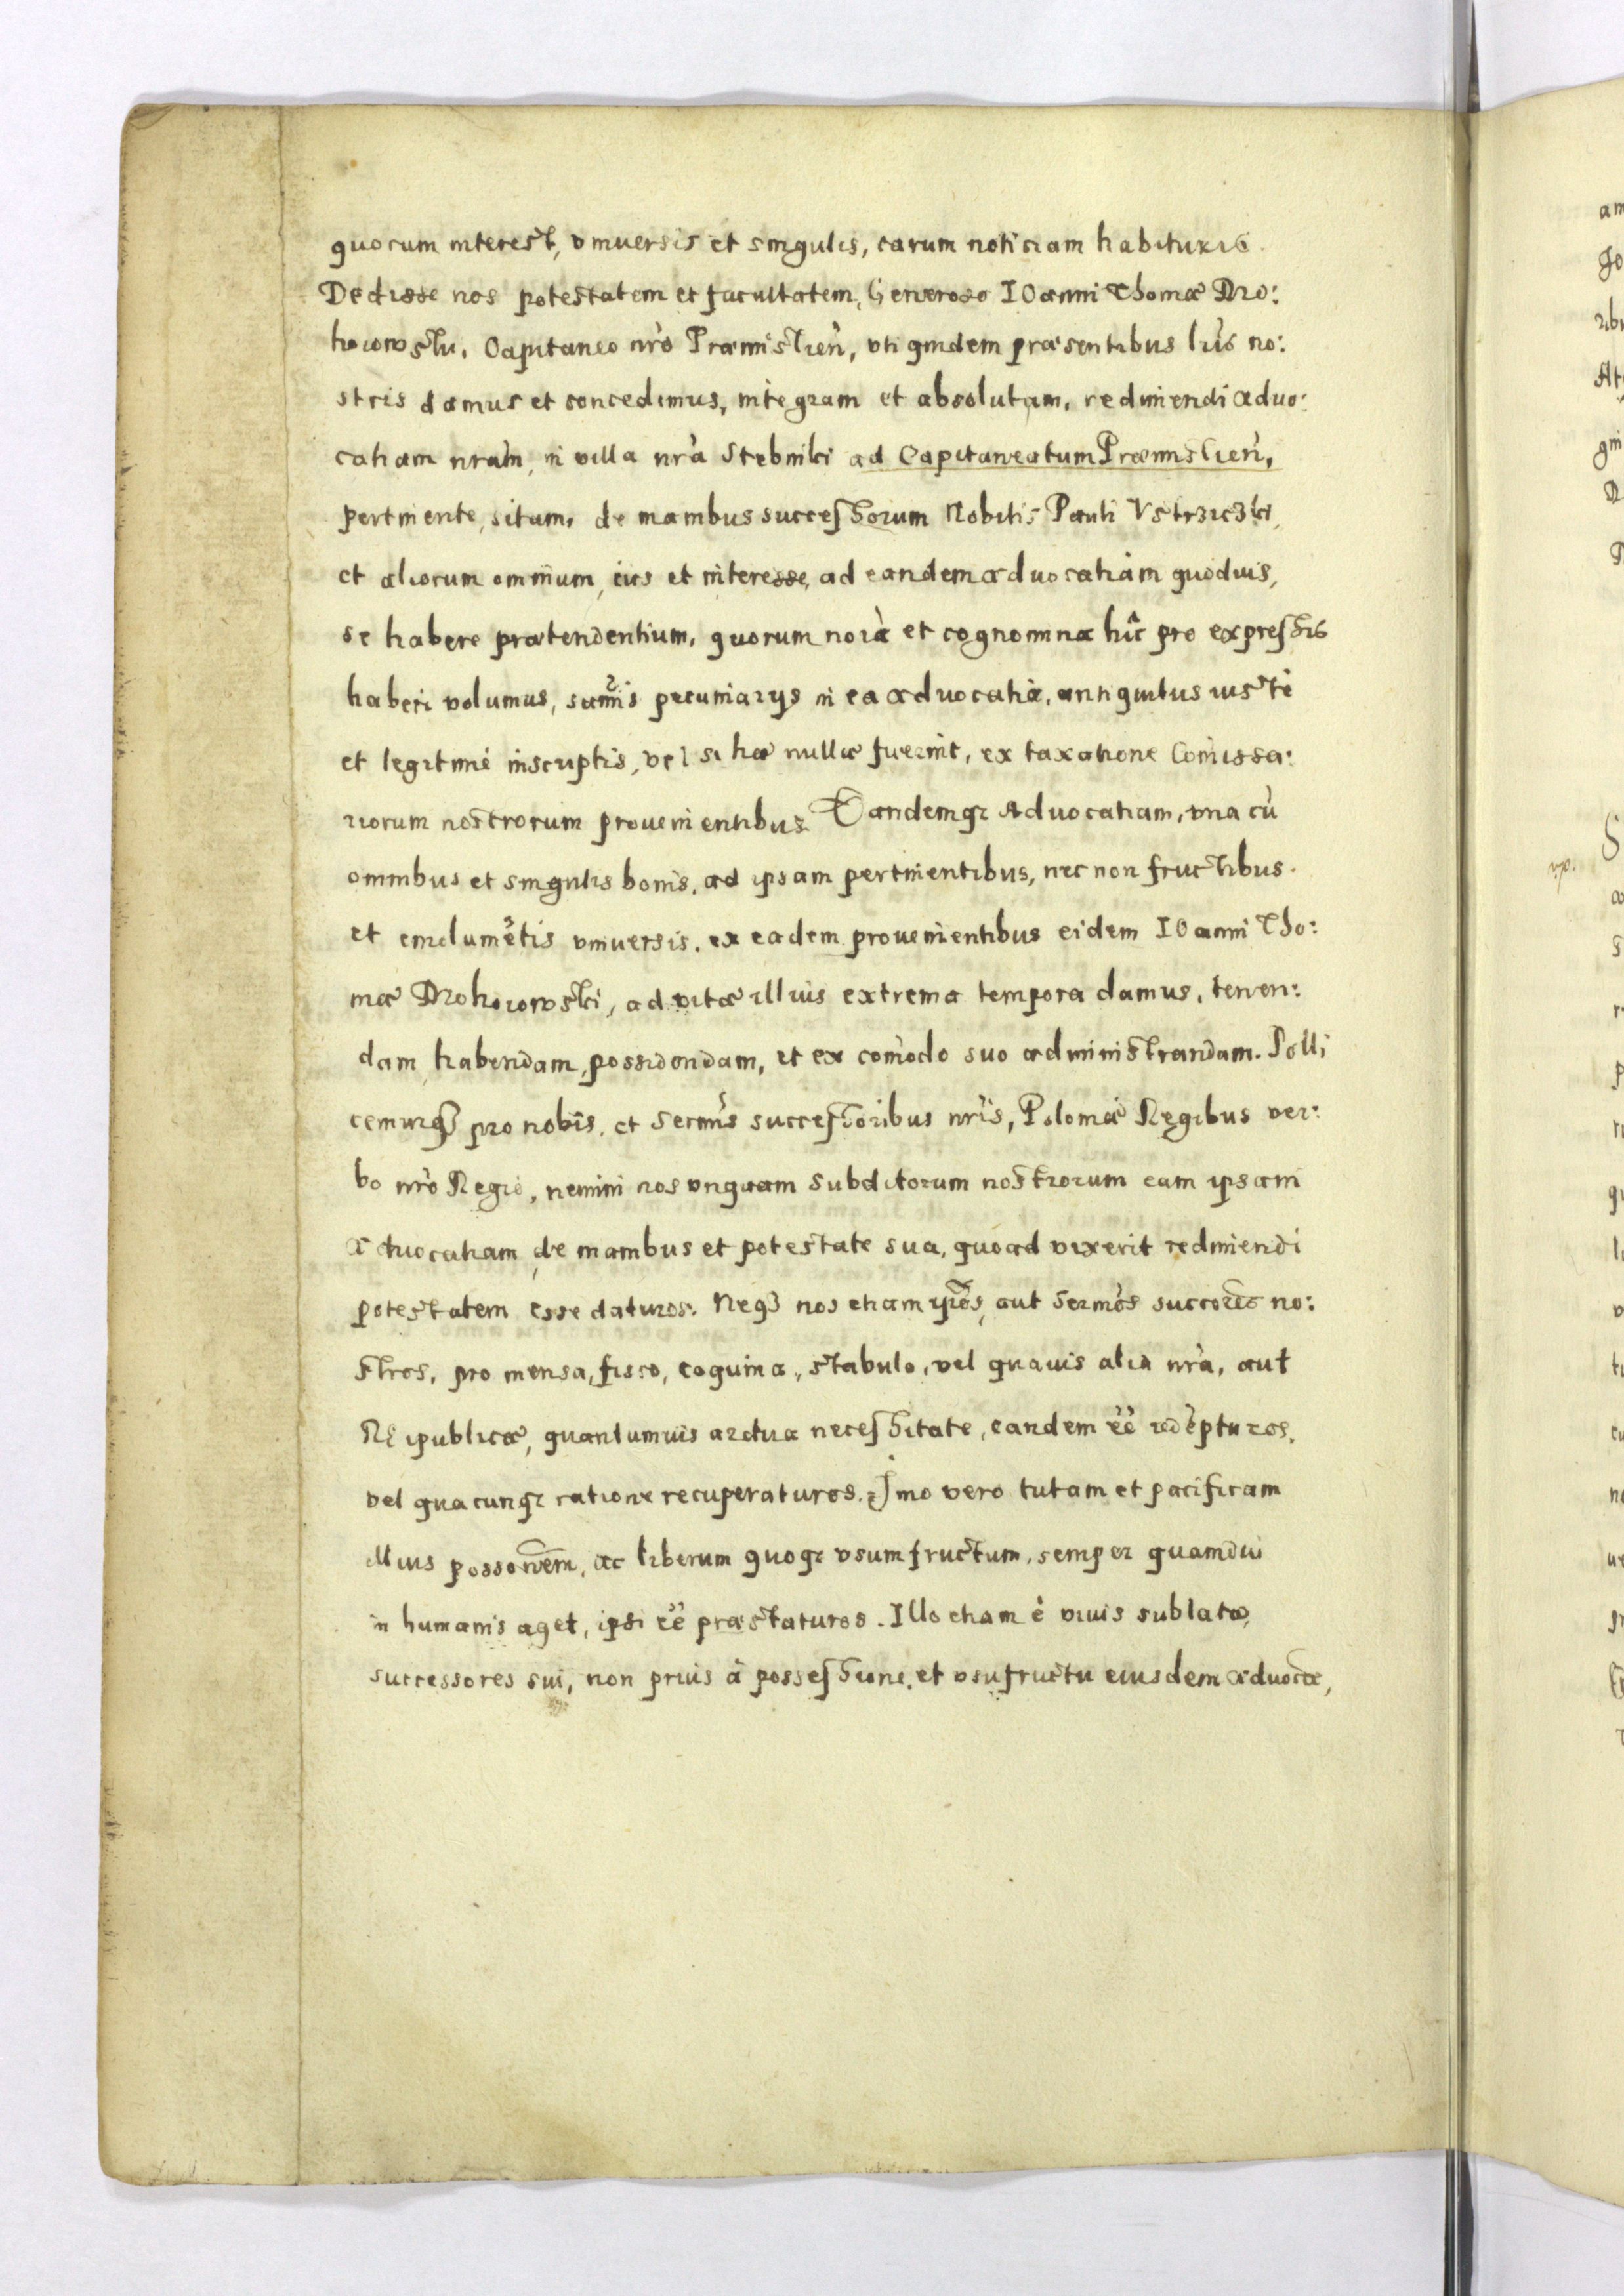 quorum interest, vniuersis et singulis, earum noticiam habituris.
Dedisse nos potestatem et facultatem, Generoso IOanni Thomæ Dro:
hoiowsku, Capitaneo nrò Præmislien, vti quidem præsentibus lris no:
stris damus et concedimus, integram et absolutam, redimendi aduo:
catiam nram, in villa nrà Stebniki ad Capitaneatum Præmislien,
pertinente, sitam, de manibus successorum Nobilis Pauli Vstrziczki,
et aliorum omnium, ius et interesse, ad eandem aduocatiam quoduis,
se habere prætendentium, quorum noià et cognomina hîc pro expressis
haberi volumus, summis pecuniarys in ea aduocatia, antiquitus iustè
et legitimè inscriptis, vel si hæ nullæ fuerint, ex taxatione Comissa:
riorum nostrorum prouenientibus. Eandemq; Aduocatiam, vna cù
omnibus et singulis bonis, ad ipsam pertinentibus, nec non fructibus.
et emolumētis vniuersis, ex eadem prouenientibus eidem IOanni Tho:
mæ Drohoiowski, ad vitæ illius extrema tempora damus, tenen:
dam, habendam, possidendam, et ex comodo suo administrandam. Polli
cemurq; pro nobis, et Sermis successoribus nris, Poloniæ Regibus ver:
bo nrò Regio, nemini nos vnquam subditorum nostrorum eam ipsam
aduocatiam, de manibus et potestate sua, quoad vixerit redimendi
potestatem esse daturos. Neq; nos etiam ipsos, aut Sermos succores no:
stros, pro mensa, fisco, coquina, stabulo, vel quauis alia nrà, aut
Reipublicæ, quantumuis ardua necessitate, eandem eē redēpturos,
vel quacunq; ratione recuperaturos. Imo vero tutam et pacificam
illius possonem, ac liberum quoq; vsumfructum, semper quamdiu
in humanis aget, ipsi eē præstaturos. Illo etiam è viuis sublato,
successores sui, non prius à possessione, et vsufructu eiusdem aduocæ,